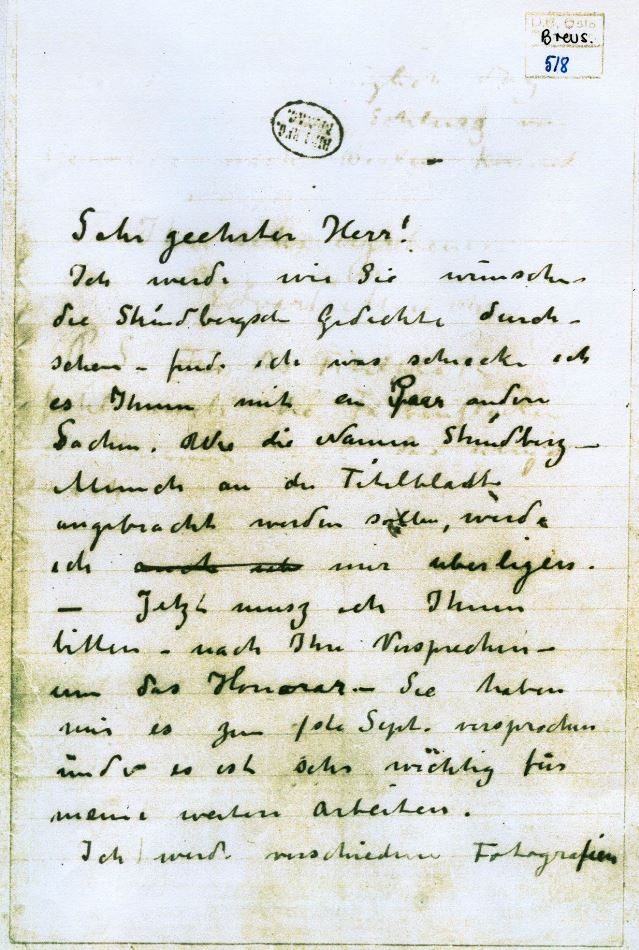 Brevs.
518
Sehr geehrter Herr!
Ich werde wie Sie wünschen
die Strindbergsch Gedichte durch-
sehen – finde ich was schicke ich
es Ihnen mit en Paar andere
Sachen. Wie die Namen Strindberg –
Munch an die Titelbladt
angebracht werden sollen, werde
ich mir uberligen.
– Jetzt musz ich Ihnen
bitten – nach Ihre Versprechen –
um das Honorar – Sie haben
mir es zum 1ste Sept. versprochen
und es ist sehr wichtig für
meine weitere Arbeiten.
Ich werde verschiedene Fotografien